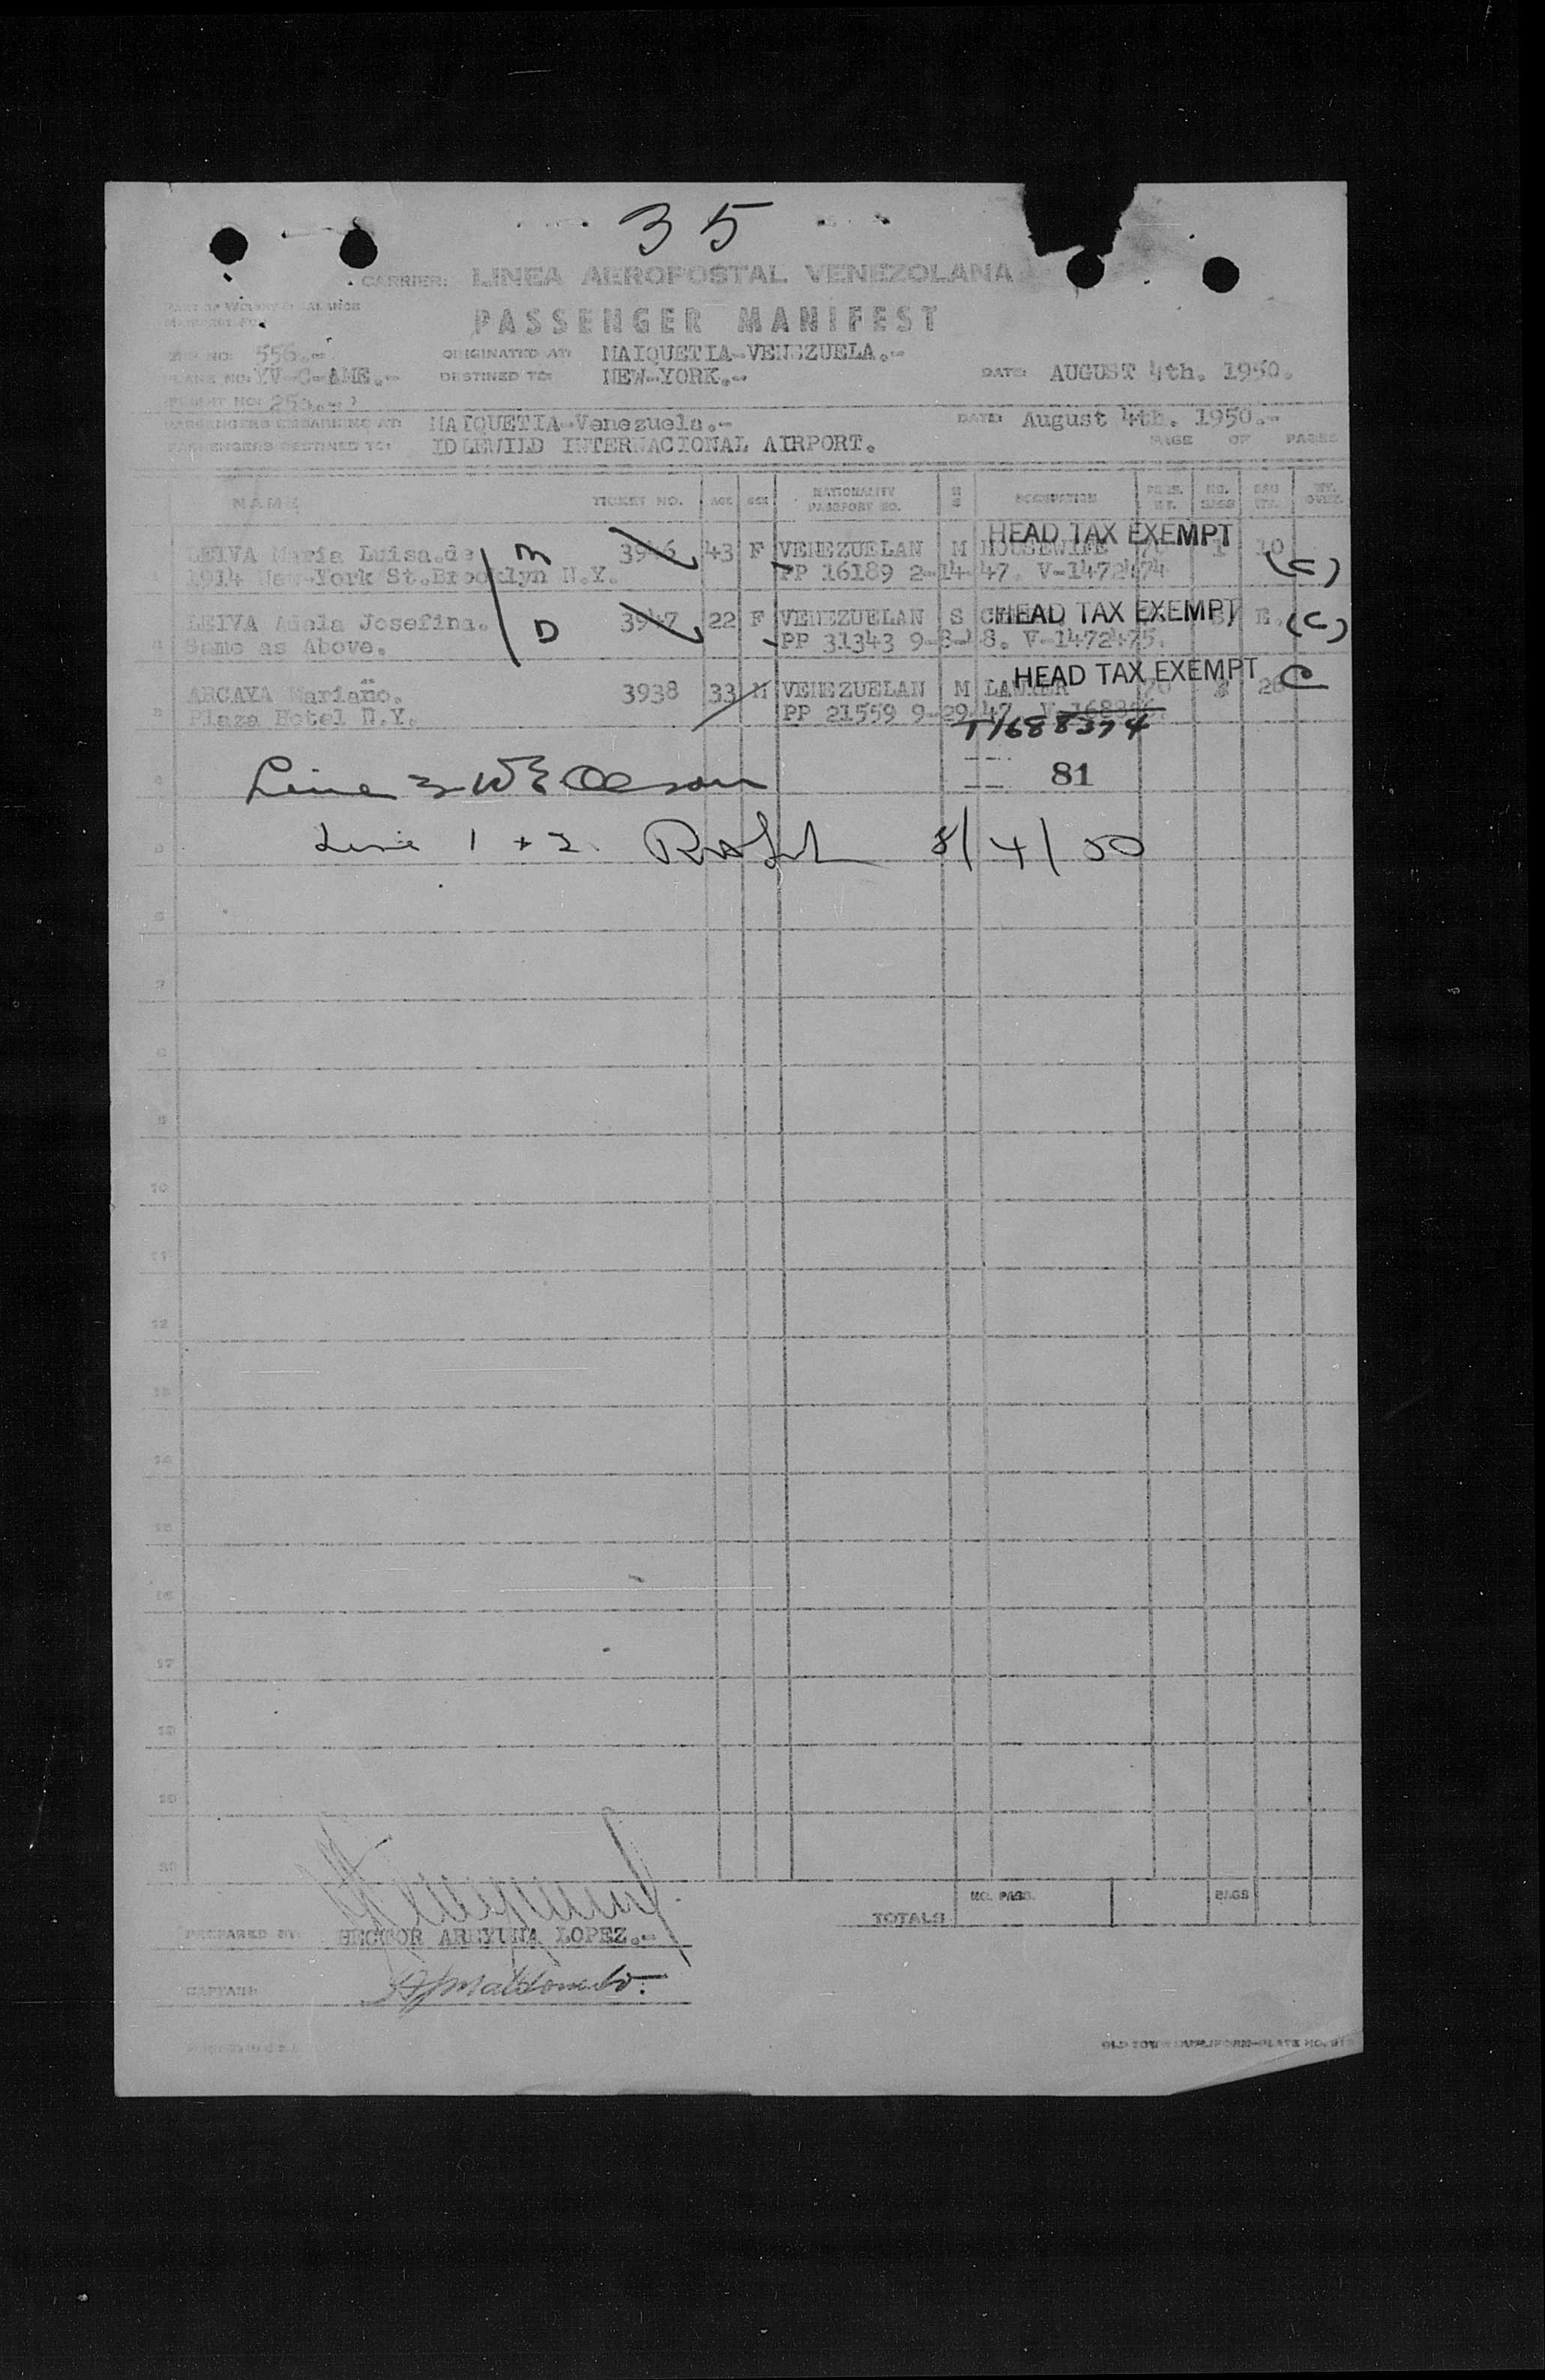 35
CARRIER: LINEA AEROPOSTAL VENEZOLANA
PASSENGER MANIFEST
NO: 556.- ORIGINATED AT: MAIQUETIA-VENEZUELA.-
PLANE NO: YV-C-AME.- DESTINED TO: NEW-YORK.- DATE: AUGUST 4th. 1950.
PASSENGERS EMBARKING AT: MAIQUETIA-Venezuela.- DATE: August 4th. 1950.-
PASSENGERS DESTINED TO: IDLEWILD INTERNACIONAL AIRPORT. PAGE OF PAGES
NAME TICKET NO. AGE SEX NATIONALITY PASSPORT NO. M S OCCUPATION PASS. WT. NO. BAGS BAG WT.
HEAD TAX EXEMPT
LEIVA Maria Luisa.de 3946 43 F VENEZUELAN M HOUSEWIFE 1 10
1914 New-York St.Brooklyn N.Y. PP 16189 2-14-47. V-1472474 (C)
HEAD TAX EXEMPT
LEIVA Adela Josefina. D 3947 22 F VENEZUELAN S (C)
Same as Above. PP 31343 V-1472475.
HEAD TAX EXEMPT C
ARCAYA Mariano. 3938 33 M VENEZUELAN M LAWYER 70
Plaza Hotel N.Y. PP 21559 9-29-47.
T1688374
Line 3 81
Line 1 + 2. 8/4/50
6
7
8
9
10
11
12
13
14
15
16
17
18
19
20
NO. PASS. BAGS
TOTALS
PREPARED BY: HECTOR LOPEZ.-
CAPTAIN: Maldonado.